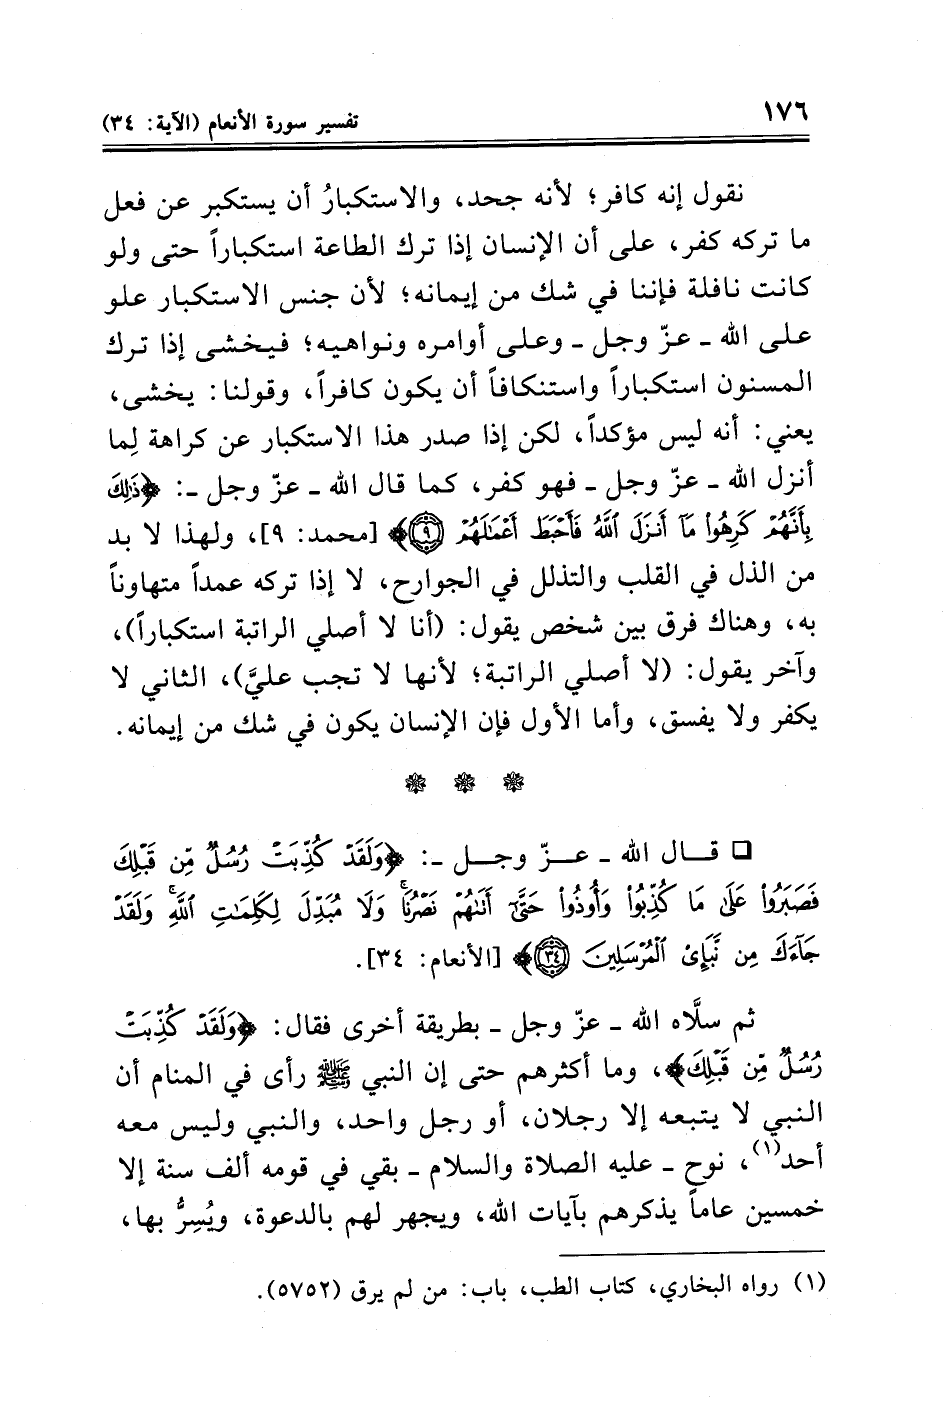 ١٧٦
تفسير سورة الأنعام (الآية: ٣٤)
نقول إنه كافر؛ لأنه جحد، والاستكبارُ أن يستكبر عن فعل
ما تركه كفر، على أن الإنسان إذا ترك الطاعة استكباراً حتى ولو
كانت نافلة فإننا في شك من إيمانه؛ لأن جنس الاستكبار علو
على الله ـ عزّ وجل ـ وعلى أوامره ونواهيه؛ فيخشى إذا ترك
المسنون استكباراً واستنكافاً أن يكون كافراً، وقولنا: يخشى،
يعني: أنه ليس مؤكداً، لكن إذا صدر هذا الاستكبار عن كراهة لِما
أنزل الله ـ عزّ وجل ـ فهو كفر، كما قال الله ـ عزّ وجل ـ: ﴿ذَٰلِكَ
بِأَنَّهُمْ كَرِهُوا۟ مَآ أَنزَلَ ٱللَّهُ فَأَحْبَطَ أَعْمَٰلَهُمْ ٩﴾ [محمد: ٩]، ولهذا لا بد
من الذل في القلب والتذلل في الجوارح، لا إذا تركه عمداً متهاوناً
به، وهناك فرق بين شخص يقول: (أنا لا أصلي الراتبة استكباراً)،
وآخر يقول: (لا أصلي الراتبة؛ لأنها لا تجب عليَّ)، الثاني لا
يكفر ولا يفسق، وأما الأول فإن الإنسان يكون في شك من إيمانه.
❁ ❁ ❁
❑ قال الله ـ عزّ وجل ـ: ﴿وَلَقَدْ كُذِّبَتْ رُسُلٌ مِّن قَبْلِكَ
فَصَبَرُوا۟ عَلَىٰ مَا كُذِّبُوا۟ وَأُوذُوا۟ حَتَّىٰٓ أَتَىٰهُمْ نَصْرُنَا ۚ وَلَا مُبَدِّلَ لِكَلِمَٰتِ ٱللَّهِ ۚ وَلَقَدْ
جَآءَكَ مِن نَّبَإِى۟ ٱلْمُرْسَلِينَ ٣٤﴾ [الأنعام: ٣٤].
ثم سلَّاه الله ـ عزّ وجل ـ بطريقة أخرى فقال: ﴿وَلَقَدْ كُذِّبَتْ
رُسُلٌ مِّن قَبْلِكَ﴾، وما أكثرهم حتى إن النبي ﷺ رأى في المنام أن
النبي لا يتبعه إلا رجلان، أو رجل واحد، والنبي وليس معه
أحد(١)، نوح ـ عليه الصلاة والسلام ـ بقي في قومه ألف سنة إلا
خمسين عاماً يذكرهم بآيات الله، ويجهر لهم بالدعوة، ويُسِرُّ بها،
(١) رواه البخاري، كتاب الطب، باب: من لم يرق (٥٧٥٢).